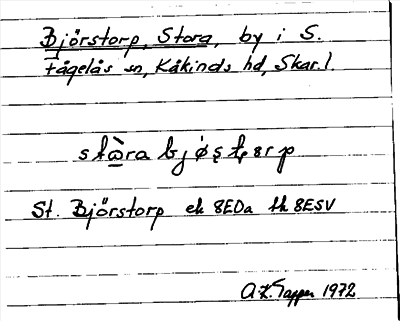 Björstorp, Stora, by i S.
Fågelås sn, Kåkinds hd, Skar.l.
stɷ̀ra bjøstərp
St. Björstorp ek 8EDa tk 8ESV
1972